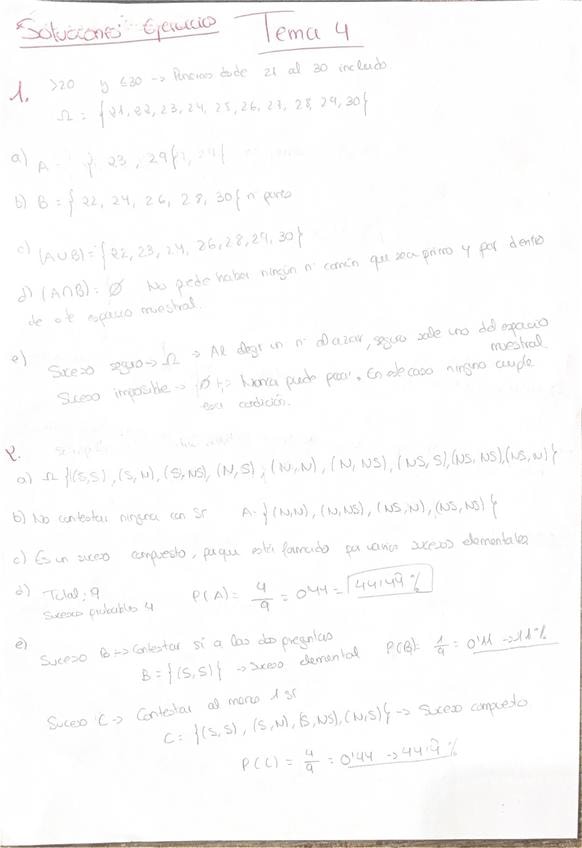 Soluciones Ejercicio Tema 4
1. >20 y ≤30 → Números desde 21 al 30 incluido
Ω = {21, 22, 23, 24, 25, 26, 27, 28, 29, 30}
a) A = { 23, 29}
b) B = {22, 24, 26, 28, 30} nº pares
c) (A∪B) = {22, 23, 24, 26, 28, 29, 30}
d) (A∩B): ∅ No puede haber ningún nº común que sea primo y par dentro
de este espacio muestral.
e) Suceso seguro → Ω → Al elegir un nº al azar, seguro sale uno del espacio
muestral
Suceso imposible → ∅ → Nunca puede pasar. En este caso ninguno cumple
esa condición.
2.
a) Ω {(S,S), (S,N), (S,NS), (N,S), (N,N), (N,NS), (NS,S), (NS,NS), (NS,N)}
b) No contestar ninguna con Sí A = {(N,N), (N,NS), (NS,N), (NS,NS)}
c) Es un suceso compuesto, porque está formado por varios sucesos elementales
d) Total: 9 P(A) = 4/9 = 0'44 = 44'44 %
Sucesos probables 4
e) Suceso B → Contestar sí a las dos preguntas
B = {(S,S)} → Suceso elemental P(B): 1/9 = 0'11 → 11 %
Suceso C → Contestar al menos 1 sí
C = {(S,S), (S,N), (S,NS), (N,S)} → Suceso compuesto
P(C) = 4/9 = 0'44 → 44'4 %